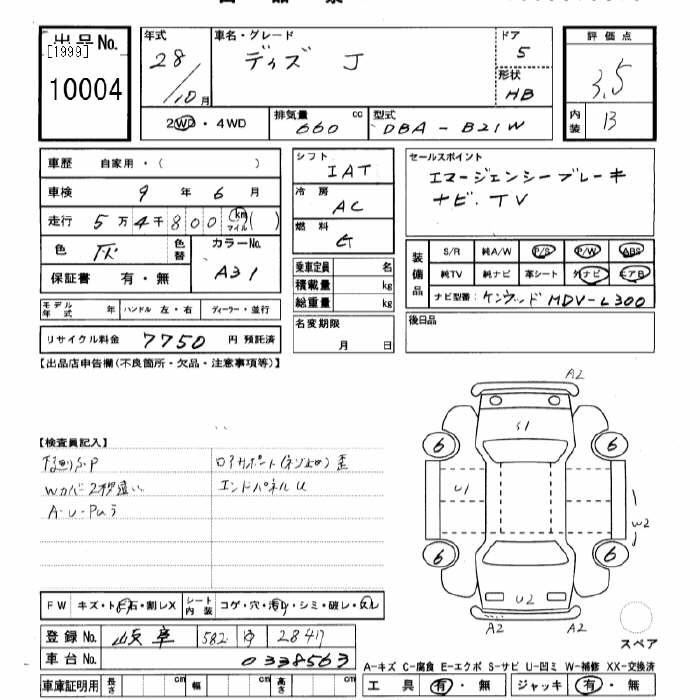 出品No.
[1999]
10004
年式 28/10月
車名・グレード デイズ J
ドア 5
形状 HB
評価点 3.5
内装 B
2WD・4WD
排気量 660 cc
型式 DBA-B21W
車歴 自家用・( )
車検 9年 6月
走行 5万4千800 km マイル( )
色 灰 色替
カラーNo. A31
保証書 有・無
モデル年式 年 ハンドル 左・右 ディーラー・並行
リサイクル料金 7750 円 預託済
シフト IAT
冷房 AC
燃料 G
乗車定員 名
積載量 kg
総重量 kg
名変期限 月 日
セールスポイント
エマージェンシーブレーキ
ナビ・TV
装備品
S/R 純A/W P/S P/W ABS
純TV 純ナビ 革シート 外ナビ エアB
ナビ型番: ケンウッド MDV-L300
後日品
【出品店申告欄(不良箇所・欠品・注意事項等)】
【検査員記入】
下廻りS・P
Wカバー2枚違い
A-U-Pwう
ロアサポート(ネジ止め)歪
エンドパネルU
A2
S1
6 6
U1
W2
6 6
U2
A2 A2
スペア
FW キズ・ト石・割レX
シート内装 コゲ・穴・汚レ・シミ・破レ・スレ
登録No. 岐阜 582 2847
車台No. 0338563
車庫証明用 長さ cm 幅 cm 高さ cm
A-キズ C-腐食 E-エクボ S-サビ U-凹ミ W-補修 XX-交換済
工具 有・無 ジャッキ 有・無